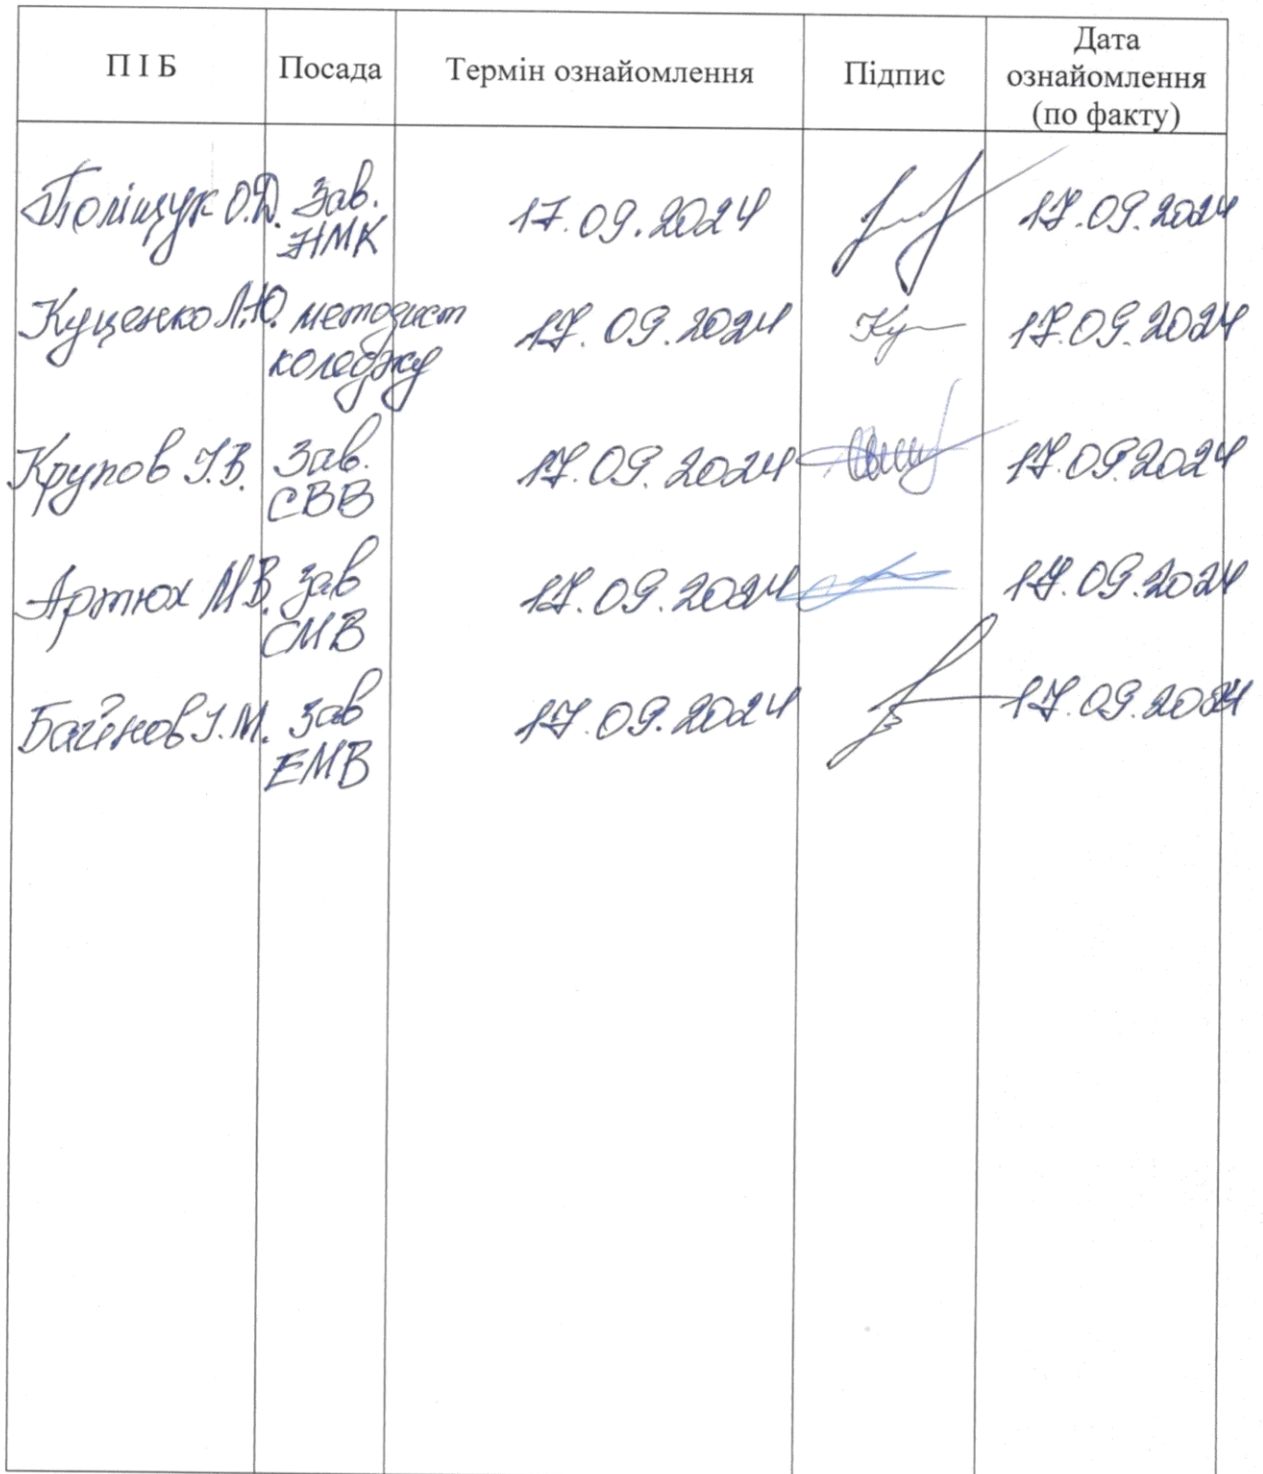 П І Б Посада Термін ознайомлення Підпис Дата ознайомлення (по факту)
Поліщук О.Д. Зав. 17.09.2024 17.09.2024
НМК
Куценко Л.Ю. методист 17.09.2024 Ку 17.09.2024
коледжу
Крупов І.В. Зав. 17.09.2024 17.09.2024
СВВ
Артюх М.В. Зав 17.09.2024 17.09.2024
СМВ
І.М. Зав 17.09.2024 17.09.2024
ЕМВ